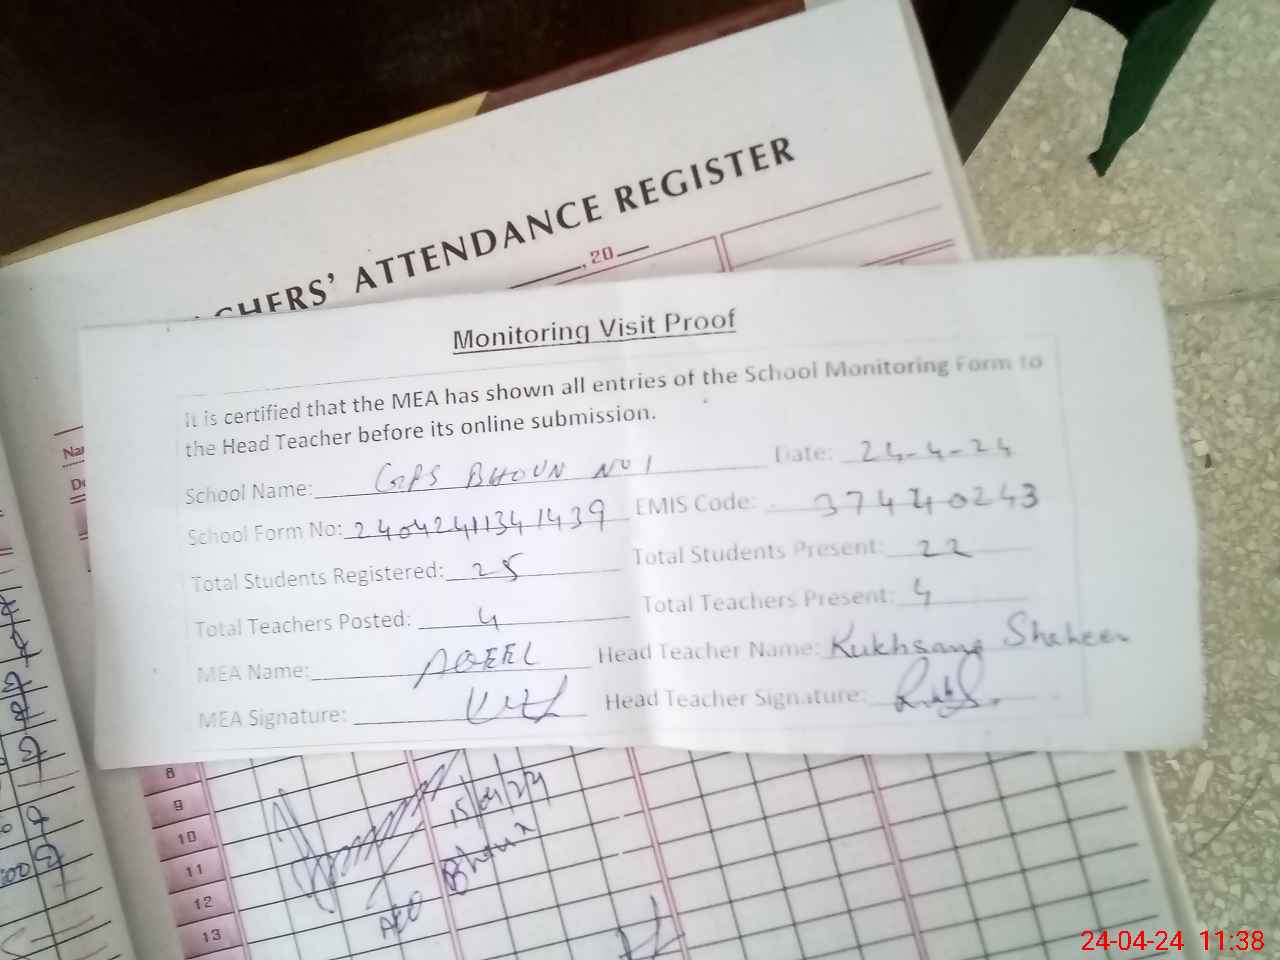 TEACHERS' ATTENDANCE REGISTER
, 20
Monitoring Visit Proof
It is certified that the MEA has shown all entries of the School Monitoring Form to
the Head Teacher before its online submission.
School Name: GPS BHOUN NO 1 Date: 24-4-24
School Form No: 24042411341439 EMIS Code: 37440243
Total Students Registered: 25 Total Students Present: 22
Total Teachers Posted: 4 Total Teachers Present: 4
MEA Name: AQEEL Head Teacher Name: Kukhsana Shaheen
MEA Signature: Head Teacher Signature:
8
9
10
11
12
13
15/04/24
AEO Bhoun
24-04-24 11:38